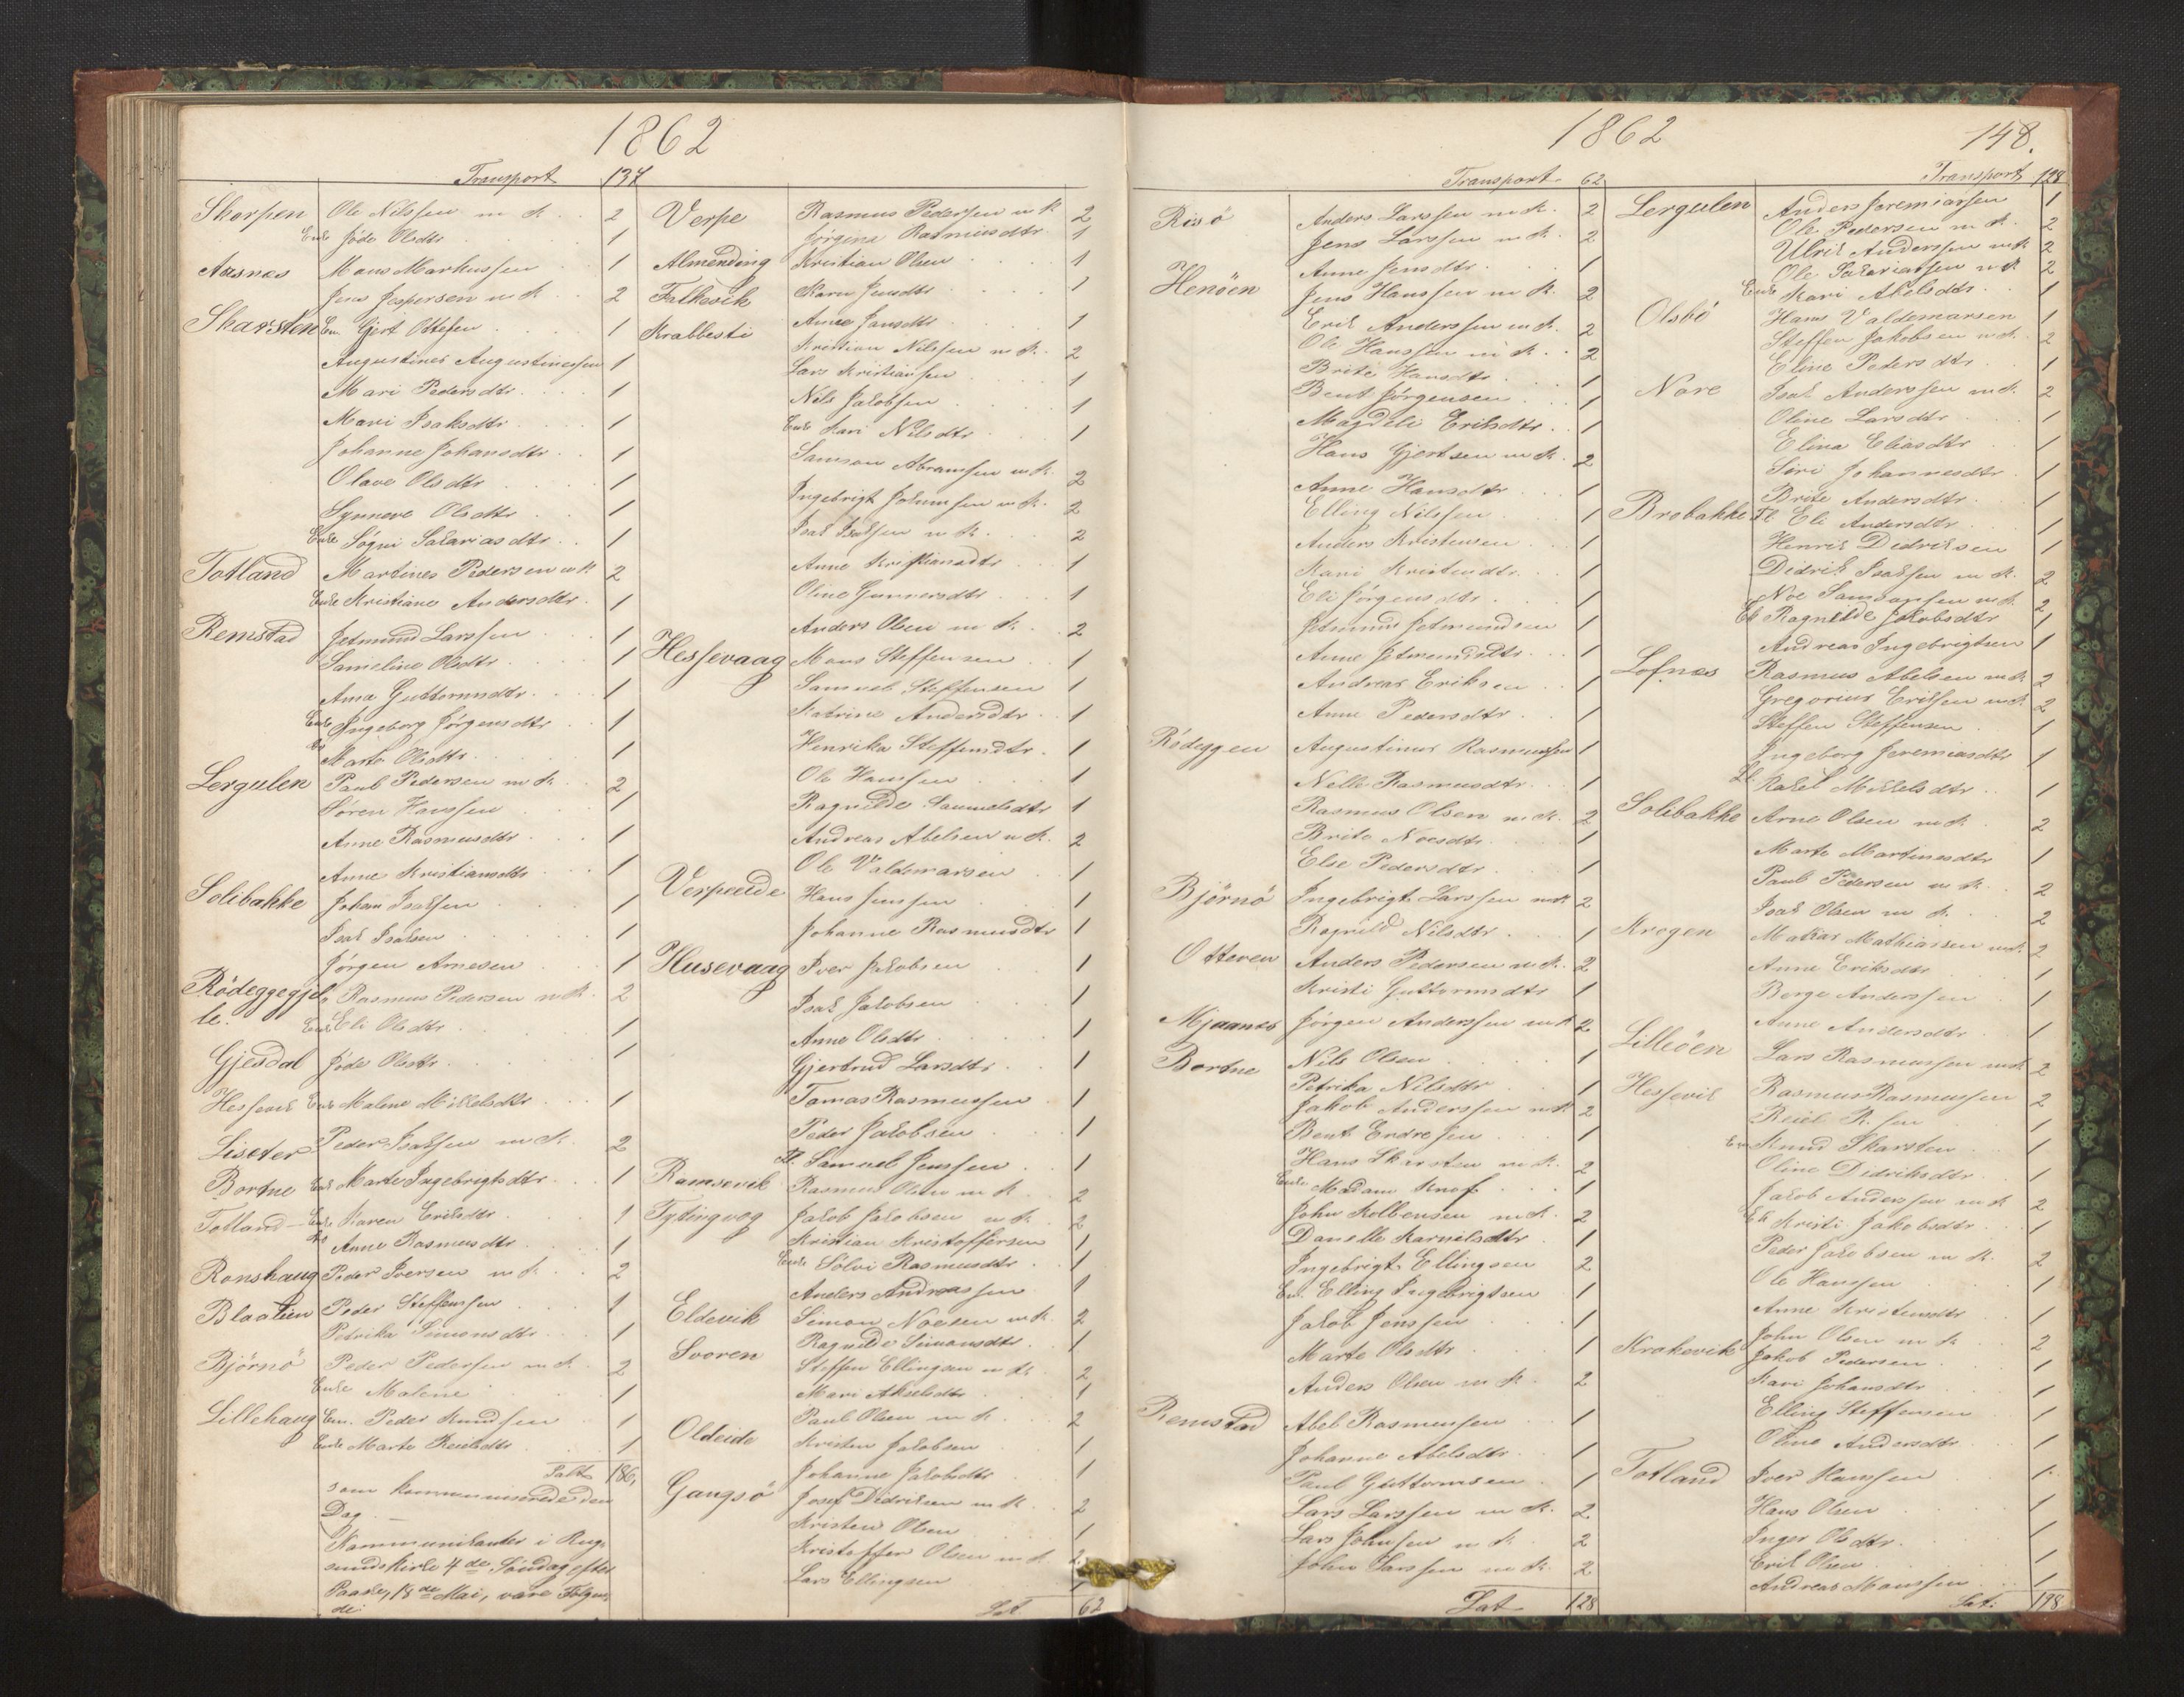 1862
Transport 137
Skorpen Ole Nilssen m K. 2
Enke Jøde Olsdtr 1
Aasnes Mons Markussen 1
Jens Jespersen m K. 2
Skarsten Em. Gjert Ottesen 1
Augustines Augustinessen 1
Mari Pedersdtr 1
Mari Isaksdtr 1
Johanne Johansdtr 1
Olave Olsdtr 1
Synneve Olsdtr 1
Enke Søgni Sakariasdtr 1
Totland Martines Pedersen m K. 2
Enke Kristiane Andersdtr 1
Remstad Jetmund Larssen 1
Sameline Olsdtr 1
Anna Guttormsdtr 1
Enke Ingeborg Jørgensdtr 1
do Marte Olsdtr 1
Lergulen Paul Pedersen m K. 2
Søren Hanssen 1
Anne Rasmusdtr 1
Anne Kristiansdtr 1
Solibakke Johan Isaksen 1
Isak Isaksen 1
Jørgen Arnesen 1
Rødeggegjel Rasmus Pedersen m K. 2
le. Enke Eli Olsdtr 1
Gjesdal Jøde Olsdtr 1
Hessevik Enke Malene Mikkelsdtr 1
Liseter Peder Isaksen m K. 2
Bortne Enke Marte Ingebrigtsdtr 1
Totland Enke Karen Eriksdtr 1
do Anne Rasmusdtr 1
Ronshaug Peder Iversen m K. 2
Blaalien Peder Steffensen 1
Petrika Simonsdtr 1
Bjørnø Peder Pedersen m K. 2
Enke Malene 1
Lillehaug Em. Peder Knudsen 1
Enke Marte Reielsdtr 1
Salt 186,
som kommunicerede den
Dag. —
Kommunikanter i Rug-
sunds Kirke 4de Søndag efter
Paaske, 18de Mai, vare Følgen-
de:
Verpe Rasmus Pedersen m K 2
Jørgine Rasmusdtr 1
Almending Kristian Olsen 1
Falkevik Karen Jensdtr 1
Krabbesti Anne Jansdtr 1
Kristian Nilssen m K. 2
Lars Kristiansen 1
Nils Jakobsen 1
Enke Kari Nilsdtr 1
Samson Abramsen m K. 2
Ingebrigt m K. 2
Isak Isaksen m K. 2
Anne Kristiansdtr 1
Oline Gunnersdtr 1
Anders Olsen m K. 2
Hessevaag Mons Steffensen 1
Samuel Steffensen 1
Katrine Andersdtr 1
Henrika Steffensdtr 1
Ole Hanssen 1
Ragnilde Samuelsdtr 1
Andreas Abelsen m K. 2
Ole Valdemarsen 1
Verpeide Hans Jenssen 1
Johanne Rasmusdtr 1
Husevaag Iver Jakobsen 1
Isak Jakobsen 1
Anne Olsdtr 1
Gjertrud Larsdtr 1
Tomas Rasmussen 1
Peder Jakobsen 1
Fl. Samuel Jenssen 1
Ramsevik Rasmus Olsen m K. 2
Tytingvog Jakob Jakobsen m K. 2
Kristian Kristoffersen 1
Enke Sølvi Rasmusdtr 1
Anders Andreassen 1
Eldevik Simon Noesen m K. 2
Svoren Ragnilde Simonsdtr 1
Steffen Ellingsen m K. 2
Mari Akselsdtr 1
Paul Olsen m K. 2
Oldeide Kristen Jakobsen 1
Johanne Jakobsdtr 1
Gangsø Josef Didriksen m K. 2
Kristen Olsen 1
Kristoffer Olsen m K. 2
Lars Ellingsen 1
Lat 62
1862
148.
Transport 62
Risø Anders Larssen m K. 2
Jens Larssen m K. 2
Henøen Anne Jensdtr 1
Jens Hanssen m K. 2
Erik Anderssen m K. 2
Ole Hanssen m K. 2
Brite Hansdtr 1
Bent Jørgensen 1
Magdeli Eriksdtr 1
Hans Gjertsen m K. 2
Anne Hansdtr 1
Elling Nilssen 1
Anders Kristensen 1
Kari Kristensdtr 1
Eli Jørgensdtr 1
Jetmund Jetmundsen 1
Anne Jetmundsdtr 1
Andreas Eriksen 1
Anne Pedersdtr 1
Rødeggen Augustinus Rasmussen 1
Nelle Rasmusdtr 1
Rasmus Olsen m K. 2
Brite Noesdtr 1
Else Pedersdtr 1
Bjørnø Ingebrigt Larssen m K. 2
Ragnild Nilsdtr 1
Otteren Anders Pedersen m K. 2
Kristi Guttormsdtr 1
Mjaanes Jørgen Anderssen m K 2
Bortne Nils Olsen 1
Petrika Nilsdtr 1
Jakob Anderssen m K. 2
Bent Endresen 1
Hans Skarsten m K. 2
Enke Madam Knof 1
John Kolbensen m K. 2
Danelle Karnilsdtr 1
Ingebrigt Ellingsen 2
Em. Elling Ingebrigtsen 1
Jakob Jenssen 1
Marte Olsdtr 1
Anders Olsen m K. 2
Remstad Abel Rasmussen 1
Johanne Abelsdtr 1
Paul Guttormsen 1
Lars Larssen m K. 2
Lars Johnsen m K. 2
John Larssen m K. 2
Lat 128
Transport 128
Lergulen Anders Jeremiassen 1
Ole Pedersen m K. 2
Ulrik Anderssen m K 2
Ole Sakariassen m K 2
Enke Kari Abelsdtr 1
Olsbø Hans Valdemarsen 1
Steffen Jakobsen m K. 2
Eline Pedersdtr 1
Nore Isak Anderssen m K. 2
Oline Larsdtr 1
Elina Eliasdtr 1
Siri Johannesdtr 1
Brite Andersdtr 1
Brobakke Fl Eli Andersdtr 1
Henrik Didriksen 1
Didrik Isaksen m K. 2
Noe Samsonsen m K. 2
Ek Ragnilde Jakobsdtr 1
Andreas Ingebrigtsen 1
Lofnæs Rasmus Abelsen m K. 2
Gregorius Eriksen m K. 2
Steffen Steffensen 1
Ingeborg Jeremiasdtr 1
Rakel Mikkelsdtr 1
Solibakke Arne Olsen m K. 2
Marte Martinesdtr 1
Paul Pedersen m K. 2
Isak Olsen m K. 2
Krogen Matias Mathiassen m K. 2
Anne Eriksdtr 1
Børge Anderssen 1
Anne Andersdtr 1
Lilleøen Lars Rasmussen m K 2
Hessevik Rasmus Rasmussen 2
Reiel R.sen 1
Em Knud Skarsten 1
Oline Didriksdtr 1
Jakob Anderssen m K 2
Ek Kristi Jakobsdtr 1
Peder Jakobsen m K. 2
Ole Hanssen 1
Anne Kristensdtr 1
Krokevik John Olsen m K 2
Jakob Pedersen 1
Kari Johansdtr 1
Elling Steffensen 1
Oline Andersdtr 1
Totland Iver Hanssen 1
Hans Olsen 1
Inger Olsdtr 1
Erik Olsen 1
Andreas Monssen 1
Lat: 198